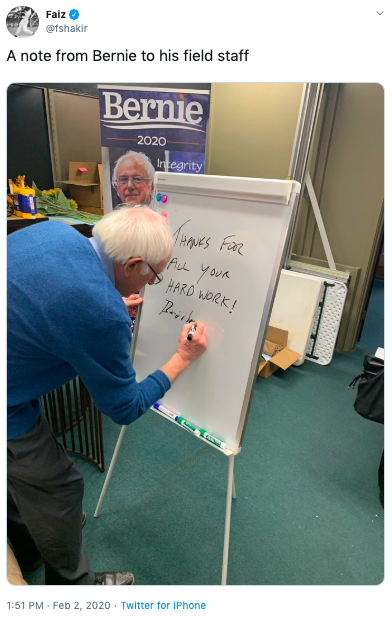 Faiz
@fshakir
A note from Bernie to his field staff
Bernie
2020
Integrity
THANKS FOR
ALL YOUR
HARD WORK!
1:51 PM · Feb 2, 2020 · Twitter for iPhone